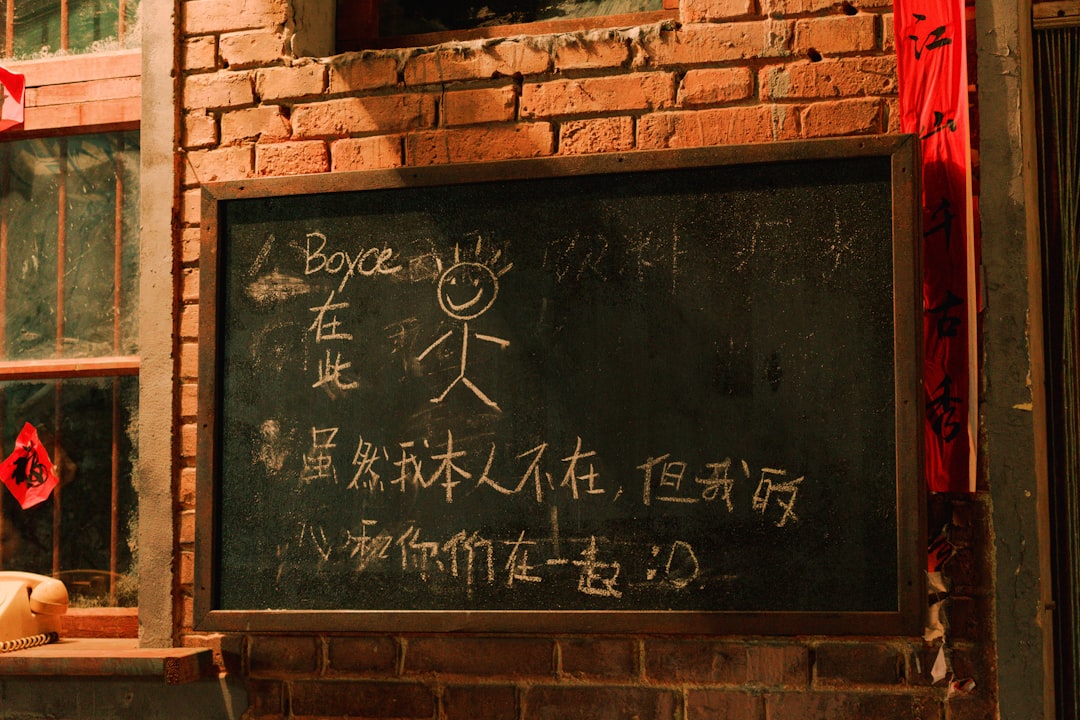 Boyce
在
此
虽然我本人不在，但我的
心和你们在一起 :D
江山千古秀
福